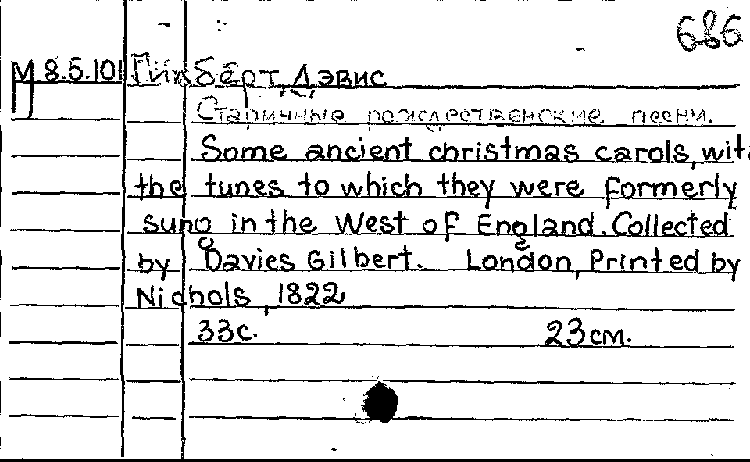 686
М 8.5.101 Гилберт, Дэвис
Старинные рождественские песни.
Some ancient christmas carols, with
the tunes to which they were formerly
sung in the West of England. Collected
by Davies Gilbert. London, Printed by
Nichols, 1822
33с. 23см.